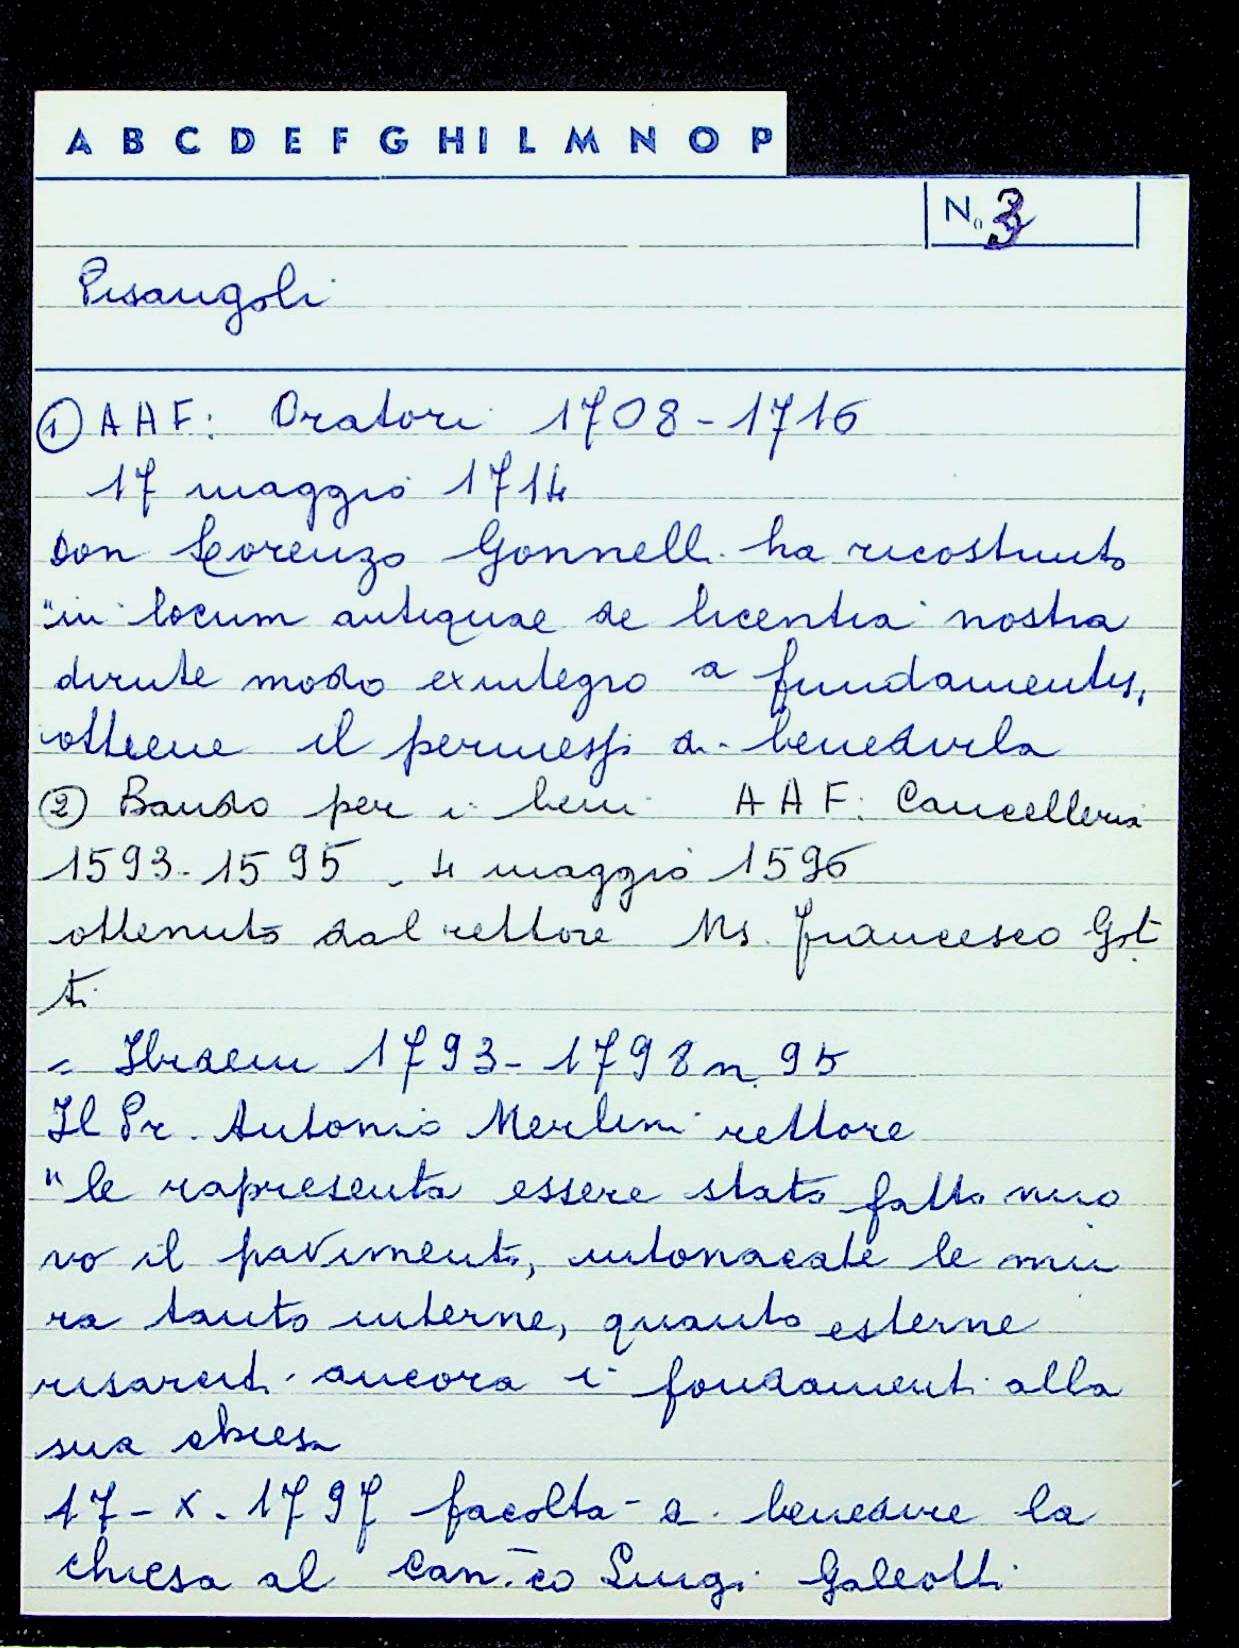 A B C D E F G H I L M N O P
N. 3
Pisangoli
① A A F: Oratori 1708-1716
17 maggio 1714
Don Lorenzo Gonnelli ha ricostruito
"in locum antiquae de licentia nostra
dirute modo exintegro a fundamentis,
ottiene il permesso di benedirla
② Bando per i beni A A F: Cancelleria
1593-1595 - 4 maggio 1596
ottenuto dal rettore Ms. Francesco
ti
= Ibidem 1793-1798 n. 95
Il Pr. Antonio Merlini rettore
"le rapresenta essere stato fatto nuo
vo il pavimento, intonacate le mu
ra tanto interne, quanto esterne
risarciti ancora i fondamenti alla
sua chiesa
17-X-1797 facoltà di benedire la
chiesa al Can.co Luigi Galeotti